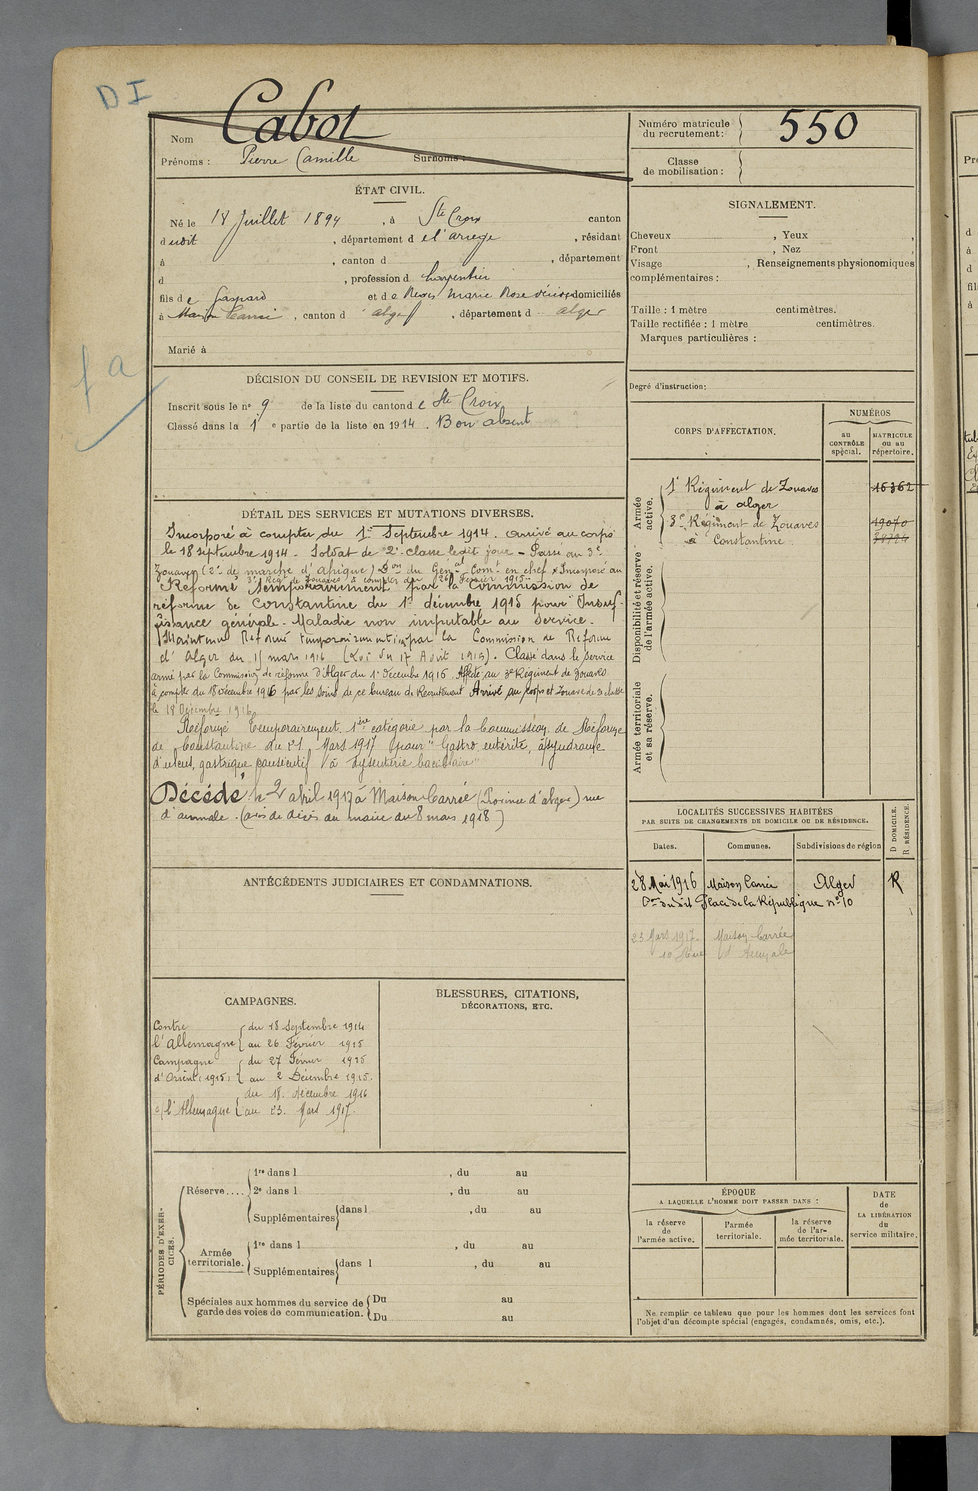 D I
Nom Cabot
Prénoms : Pierre Camille Surnoms :
Numéro matricule
du recrutement : 550
Classe
de mobilisation :
ÉTAT CIVIL.
Né le 18 Juillet 1894, à Ste Croix canton
dudit, département de l'ariège, résidant
à , canton d , département
d , profession d Charpentier
fils de Gaspard et de Marie Rose domiciliés
à Maison Carrée, canton d alger, département d alger
Marié à
fa
SIGNALEMENT.
Cheveux , Yeux ,
Front , Nez ,
Visage , Renseignements physionomiques
complémentaires :
Taille : 1 mètre centimètres.
Taille rectifiée : 1 mètre centimètres.
Marques particulières :
Degré d'instruction :
DÉCISION DU CONSEIL DE REVISION ET MOTIFS.
Inscrit sous le n° 9 de la liste du canton de Ste Croix
Classé dans la 1e partie de la liste en 1914. Bon absent
CORPS D'AFFECTATION.
NUMÉROS
au
CONTRÔLE
spécial.
MATRICULE
ou au
répertoire.
Armée
active.
1er Régiment de Zouaves 16362
à alger
3e Régiment de Zouaves 19070
à Constantine
Disponibilité et réserve
de l'armée active.
Armée territoriale
et sa réserve.
DÉTAIL DES SERVICES ET MUTATIONS DIVERSES.
Incorporé à compter du 1er Septembre 1914. arrivé au corps
le 18 septembre 1914. Soldat de 2e classe le dit jour – Passé au 3e
Zouaves (2e de marche d'afrique) Don du Genal Comt en chef Incorporé au
3e Rég. de Zouaves à compter du 26 février 1915
Réformé Temporairement par la Commission de
réforme de Constantine du 1er décembre 1915 pour Insuf-
fisance générale. Maladie non imputable au service.
Maintenu Réformé temporairement par la Commission de Réforme
d'Alger du 15 mars 1916 (Loi du 17 Août 1915). Classé dans le service
armé par la Commission de réforme d'Alger du 1er décembre 1916 Affecté au 3e Régiment de Zouaves
à compter du 18 décembre 1916 par les soins de ce bureau de Recrutement Arrivé au corps et Zouave de 2e classe
le 18 Décembre 1916
Réformé Temporairement 1ère catégorie par la Commission de Réforme
de Constantine du 21 Mars 1917 pour "Gastro entérite, syndrome
d'ulcus, gastrique consécutif à dysenterie bacillaire"
Décédé le 2 avril 1917 à Maison Carrée (Province d'alger) rue
d'aumale. (avis de décès du maire du 8 mars 1918)
ANTÉCÉDENTS JUDICIAIRES ET CONDAMNATIONS.
LOCALITÉS SUCCESSIVES HABITÉES
PAR SUITE DE CHANGEMENTS DE DOMICILE OU DE RÉSIDENCE.
Dates. Communes. Subdivisions de région
D DOMICILE.
R RÉSIDENCE.
28 Mai 1916 Maison Carrée Alger R
Place de la République n° 10
23 Mars 1917 Maison Carrée
d'Aumale
CAMPAGNES.
Contre du 18 Septembre 1914
l'Allemagne au 26 Février 1915
Campagne du 27 Février 1915
d'Orient (1915) au 2 Décembre 1915.
du 18 décembre 1916
c/ l'Allemagne au 23 Mars 1917.
BLESSURES, CITATIONS,
DÉCORATIONS, ETC.
PÉRIODES D'EXER-
CICES.
Réserve....
1re dans l , du au
2e dans l , du au
Supplémentaires dans l , du au
Armée
territoriale.
1re dans l , du au
Supplémentaires dans l , du au
Spéciales aux hommes du service de
garde des voies de communication.
Du au
Du au
ÉPOQUE
A LAQUELLE L'HOMME DOIT PASSER DANS :
la réserve
de
l'armée active.
l'armée
territoriale.
la réserve
de l'ar-
mée territoriale.
DATE
de
LA LIBÉRATION
du
service militaire.
Ne remplir ce tableau que pour les hommes dont les services font
l'objet d'un décompte spécial (engagés, condamnés, omis, etc.).